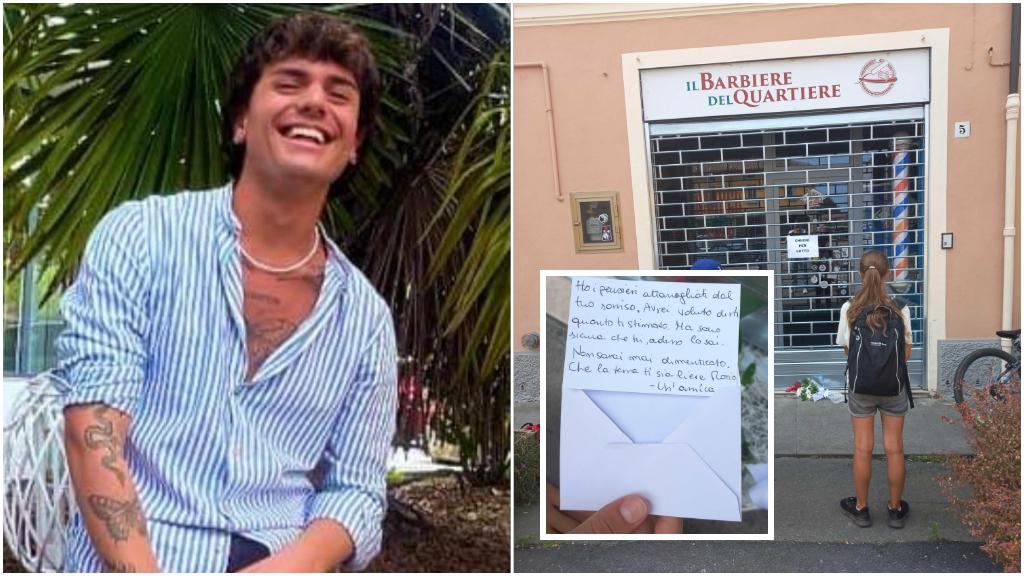 IL BARBIERE
DEL QUARTIERE
5
CHIUSO
PER
LUTTO
Ho i pensieri attanagliati dal
tuo sorriso. Avrei voluto dirti
quanto ti stimavo. Ma sono
sicura che tu, adesso lo sai.
Non sarai mai dimenticato.
Che la terra ti sia lieve
- Un'amica